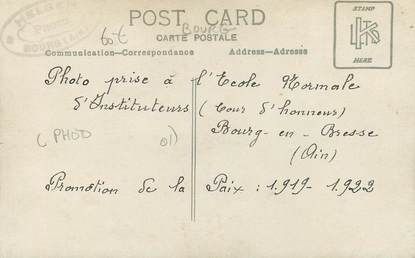 POST CARD
BOURG
CARTE POSTALE
60€
Communication-Correspondance Address-Adresse
STAMP
HERE
Photo prise à l'Ecole Normale
d'Instituteurs (Cour d'honneur)
Bourg-en-Bresse
(Ain)
(PHOD 01)
Promotion de la Paix : 1.919- 1.922